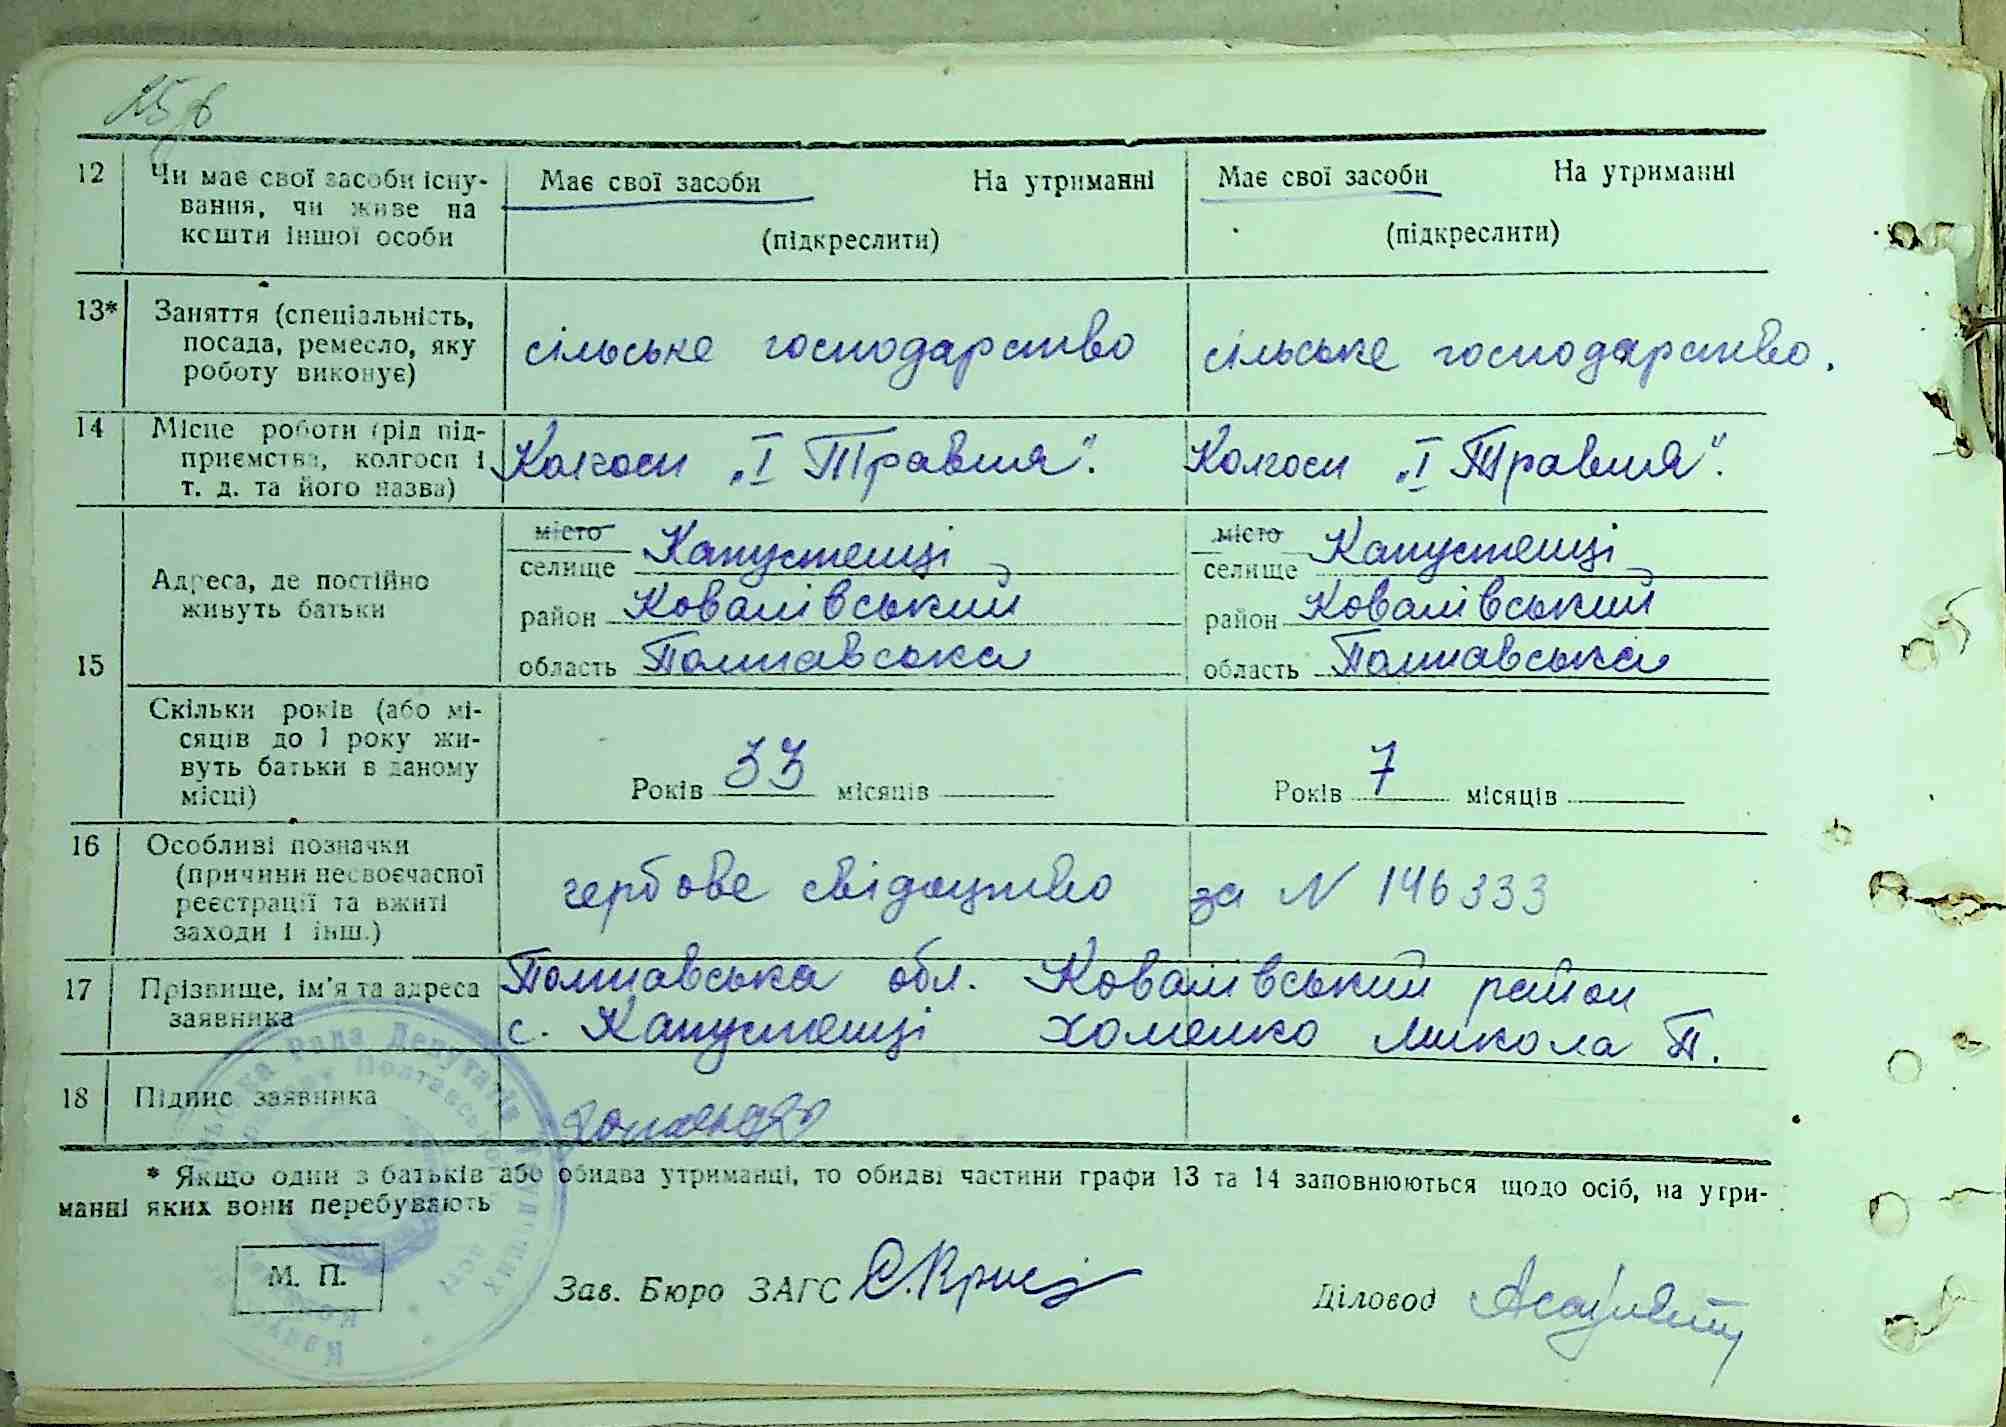 12 Чи має свої засоби існу-
вання, чи живе на
кошти іншої особи
Має свої засоби На утриманні
(підкреслити)
Має свої засоби На утриманні
(підкреслити)
13* Заняття (спеціальність,
посада, ремесло, яку
роботу виконує)
сільське господарство
сільське господарство.
14 Місце роботи (рід під-
приємства, колгосп і
т. д. та його назва)
Колгосп „І Травня".
Колгосп „І Травня".
15 Адреса, де постійно
живуть батьки
місто
селище Капустенці
район Ковалівський
область Полтавська
місто
селище Капустенці
район Ковалівський
область Полтавська
Скільки років (або мі-
сяців до 1 року жи-
вуть батьки в даному
місці)
Років 33 місяців
Років 7 місяців
16 Особливі позначки
(причини несвоєчасної
реєстрації та вжиті
заходи і інш.)
гербове свідоцтво за N 146333
17 Прізвище, ім'я та адреса
заявника
Полтавська обл. Ковалівський район
с. Капустенці Хоменко Микола П.
18 Підпис заявника
* Якщо один з батьків або обидва утриманці, то обидві частини графи 13 та 14 заповнюються щодо осіб, на утри-
манні яких вони перебувають
М. П.
Зав. Бюро ЗАГС
Діловод